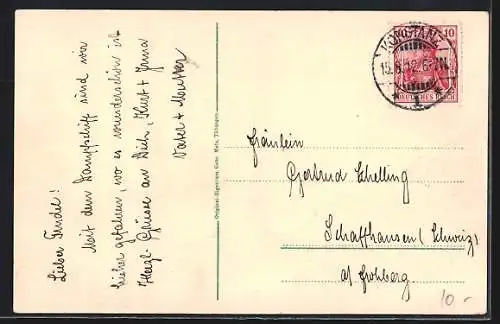 Lieber Trudel!
Mit dem Dampfschiff sind wir
hieher gefahren, wo es wunderschön ist
Herzl. Grüsse an Dich, Kurt + Irma
Vater + Mutter
KONSTANZ
15.8.12. 6-7N.
* 1 *
10
DEUTSCHES REICH
Fräulein
Gertrud Schelling
Schaffhausen (Schweiz)
a/ Frohberg
10.-